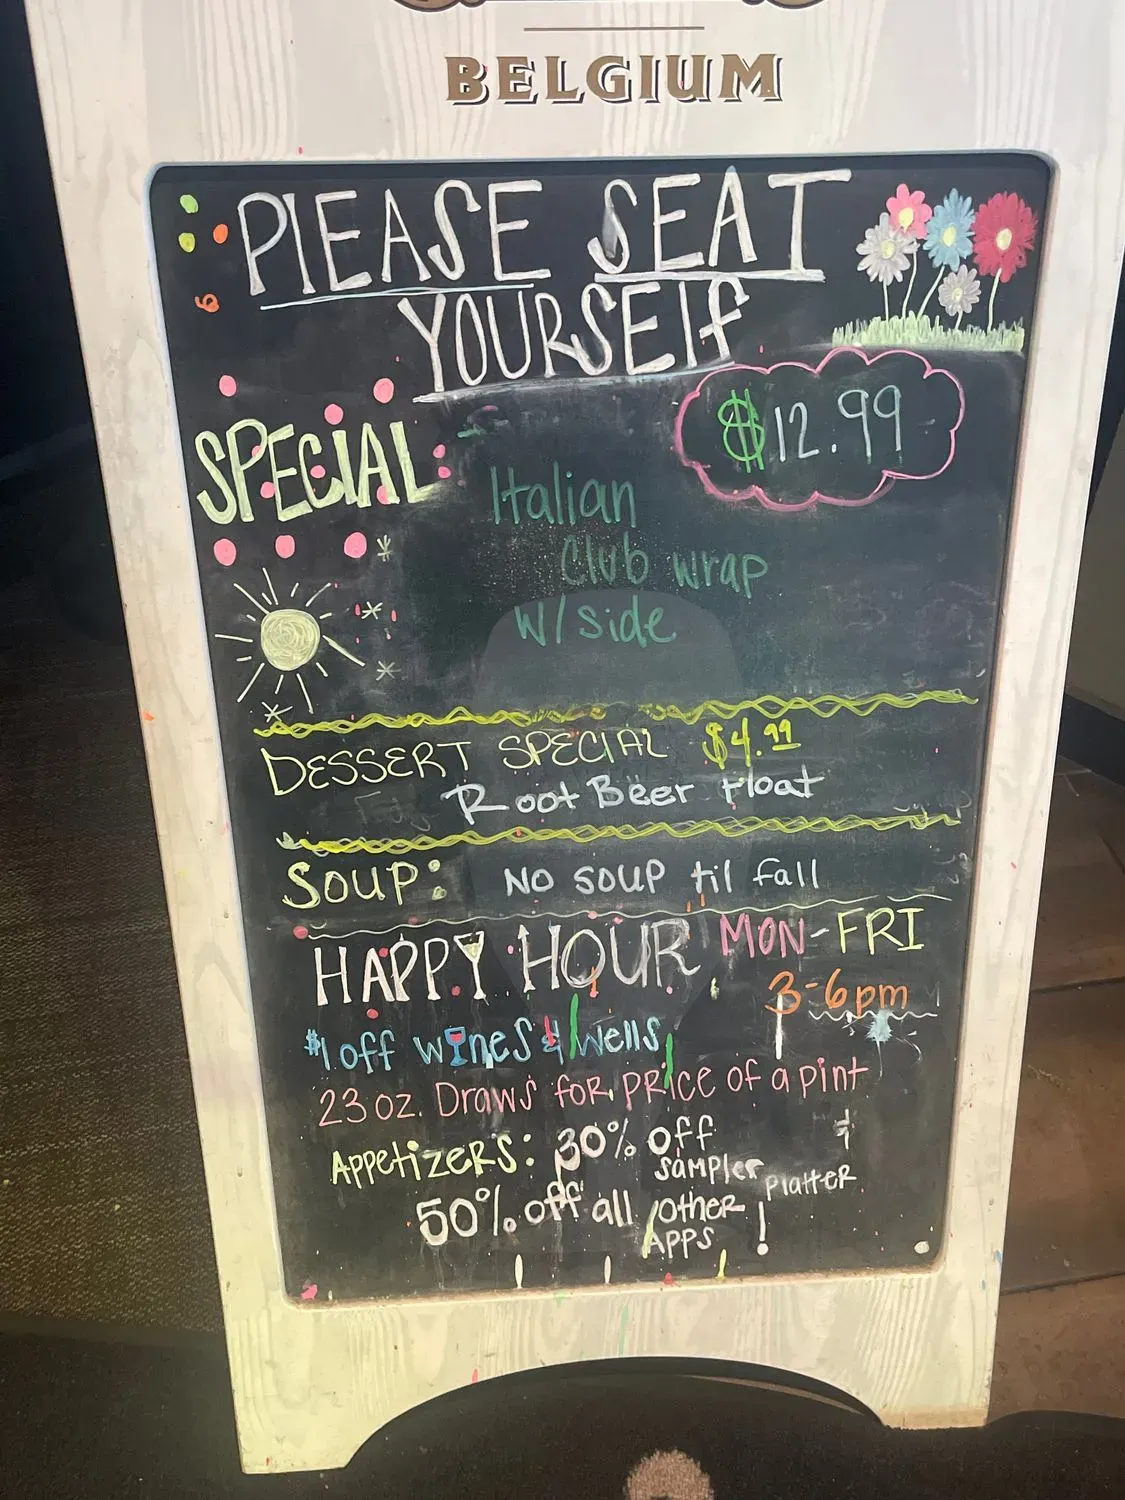 BELGIUM
PLEASE SEAT
YOURSELF
$12.99
SPECIAL
Italian
Club wrap
W/side
DESSERT SPECIAL $4.99
Root Beer Float
SOUP: NO SOUP til fall
HAPPY HOUR MON-FRI
3-6pm
$1 off wines & wells
23 oz. Draws for price of a pint
&
APPetizers: 30% off
sampler platter
50% off all other
APPS !